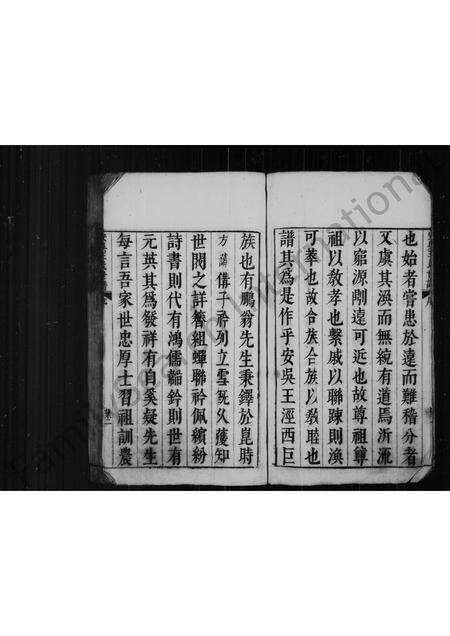 也始者嘗患於遠而難稽分者
又虞其渙而無統有道焉沂流
以窮源則遠可近也故尊祖尊
祖以敎孝也繫戚以聯踈則渙
可萃也故合族合族以敎睦也
譜其爲是作乎安吳王涇西巨
族也有鵬翁先生秉鐸於崑時
方 偹子衿列立雪旣久獲知
世閥之詳簪祖蟬聯衿佩繽紛
詩書則代有鴻儒韜鈐則世有
元英其爲發祥有自奚疑先生
每言吾家世忠厚士習祖訓農
Family Search International